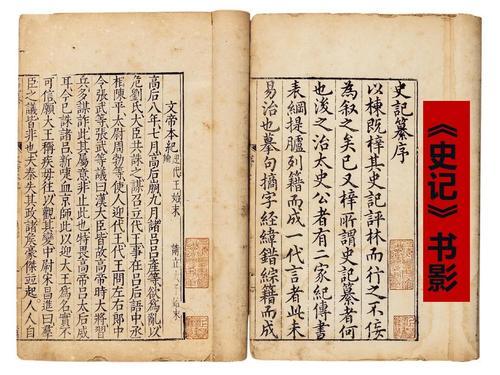 《史记》书影
史記纂序
以棟既梓其史記評林而行之不佞
為叙之矣已又梓所謂史記纂者何
也後之治太史公者有二家紀傳書
表綱提臚列籍而成一代言者此未
易治也摹句摘字經緯錯綜籍而成
文帝本紀 迎代王始末
高后八年七月高后崩九月諸呂呂產等欲為亂以
危劉氏大臣共誅之謀召立代王事在呂后語中丞
相陳平太尉周勃等使人迎代王代王問左右郎中
令張武等張武等議曰漢大臣皆故高帝時大將習
兵多謀詐此其屬意非止此也特畏高帝呂太后威
耳今已誅諸呂新啑血京師此以迎大王為名實不
可信願大王稱疾毋往以觀其變中尉宋昌進曰羣
臣之議皆非也夫秦失其政諸侯豪傑並起人人自